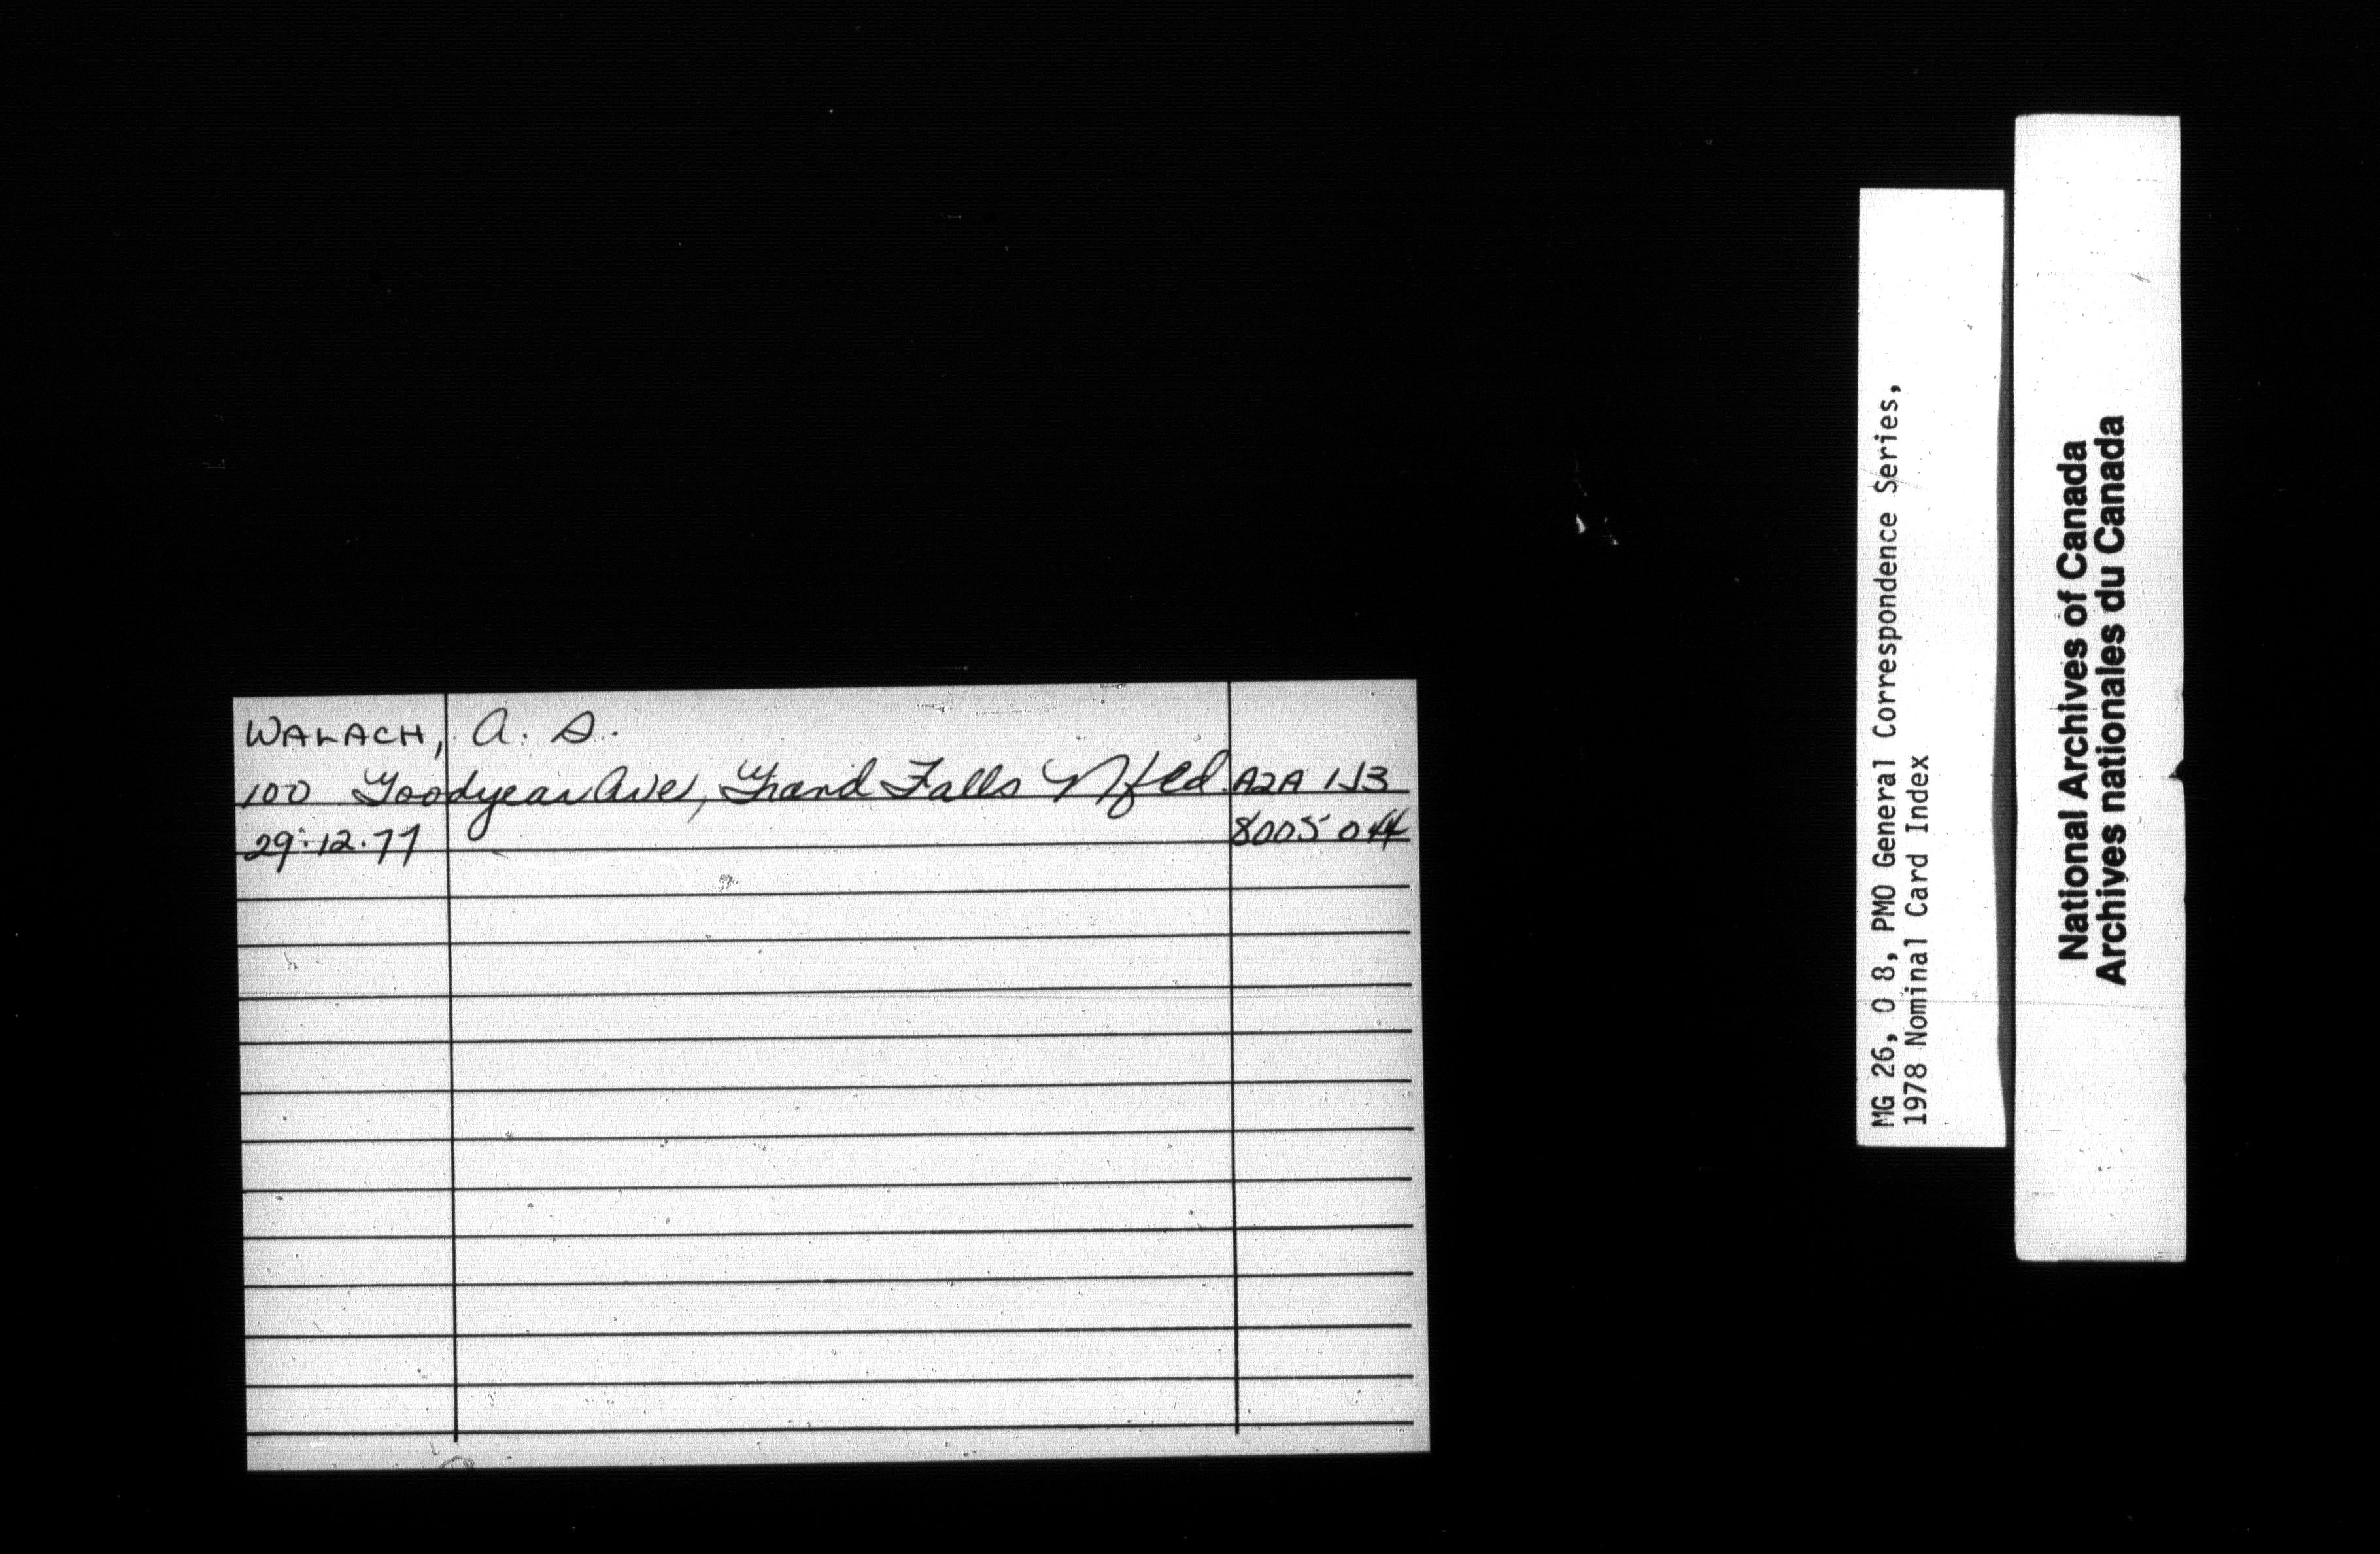 WALACH, A. S.
100 Goodyear Ave, Grand Falls Nfld. A2A 1J3
29.12.77 8005 044
MG 26, O 8, PMO General Correspondence Series,
1978 Nominal Card Index
National Archives of Canada
Archives nationales du Canada